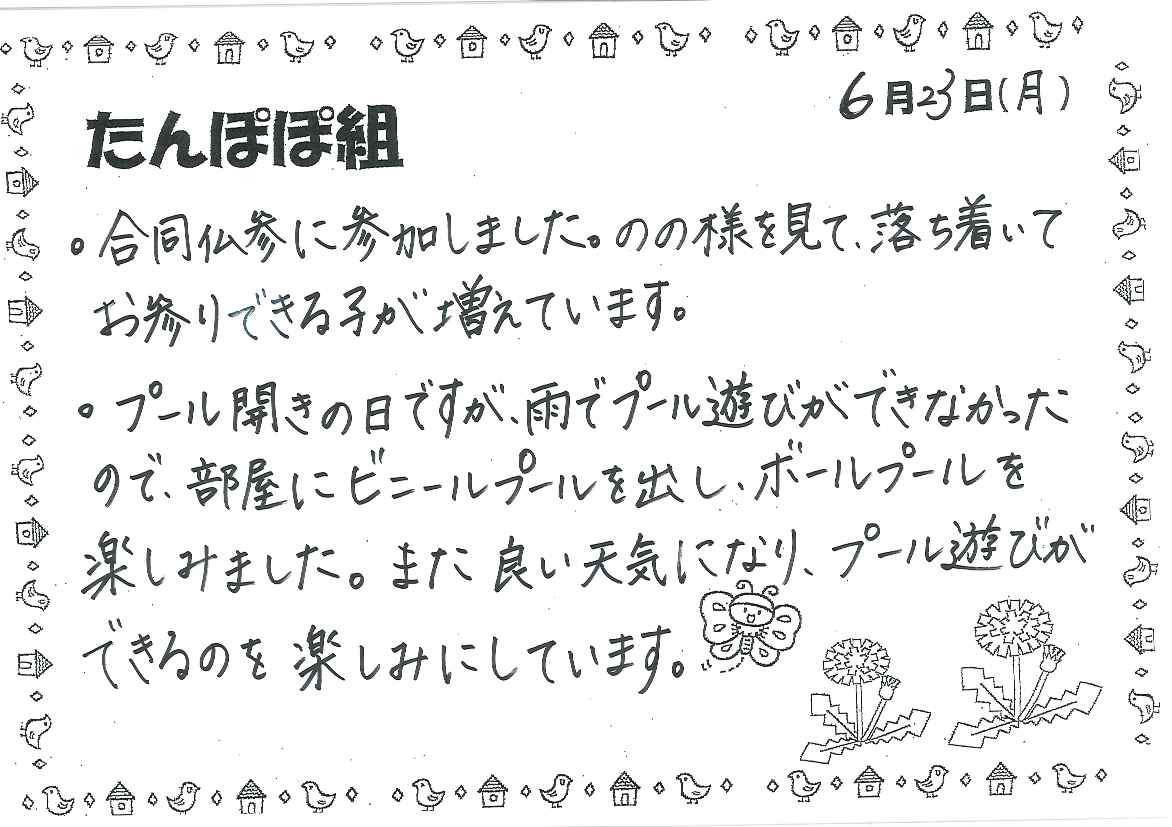 6月23日(月)
たんぽぽ組
。合同仏参に参加しました。のの様を見て、落ち着いて
お参りできる子が増えています。
。プール開きの日ですが、雨でプール遊びができなかった
ので、部屋にビニールプールを出し、ボールプールを
楽しみました。また良い天気になり、プール遊びが
できるのを楽しみにしています。